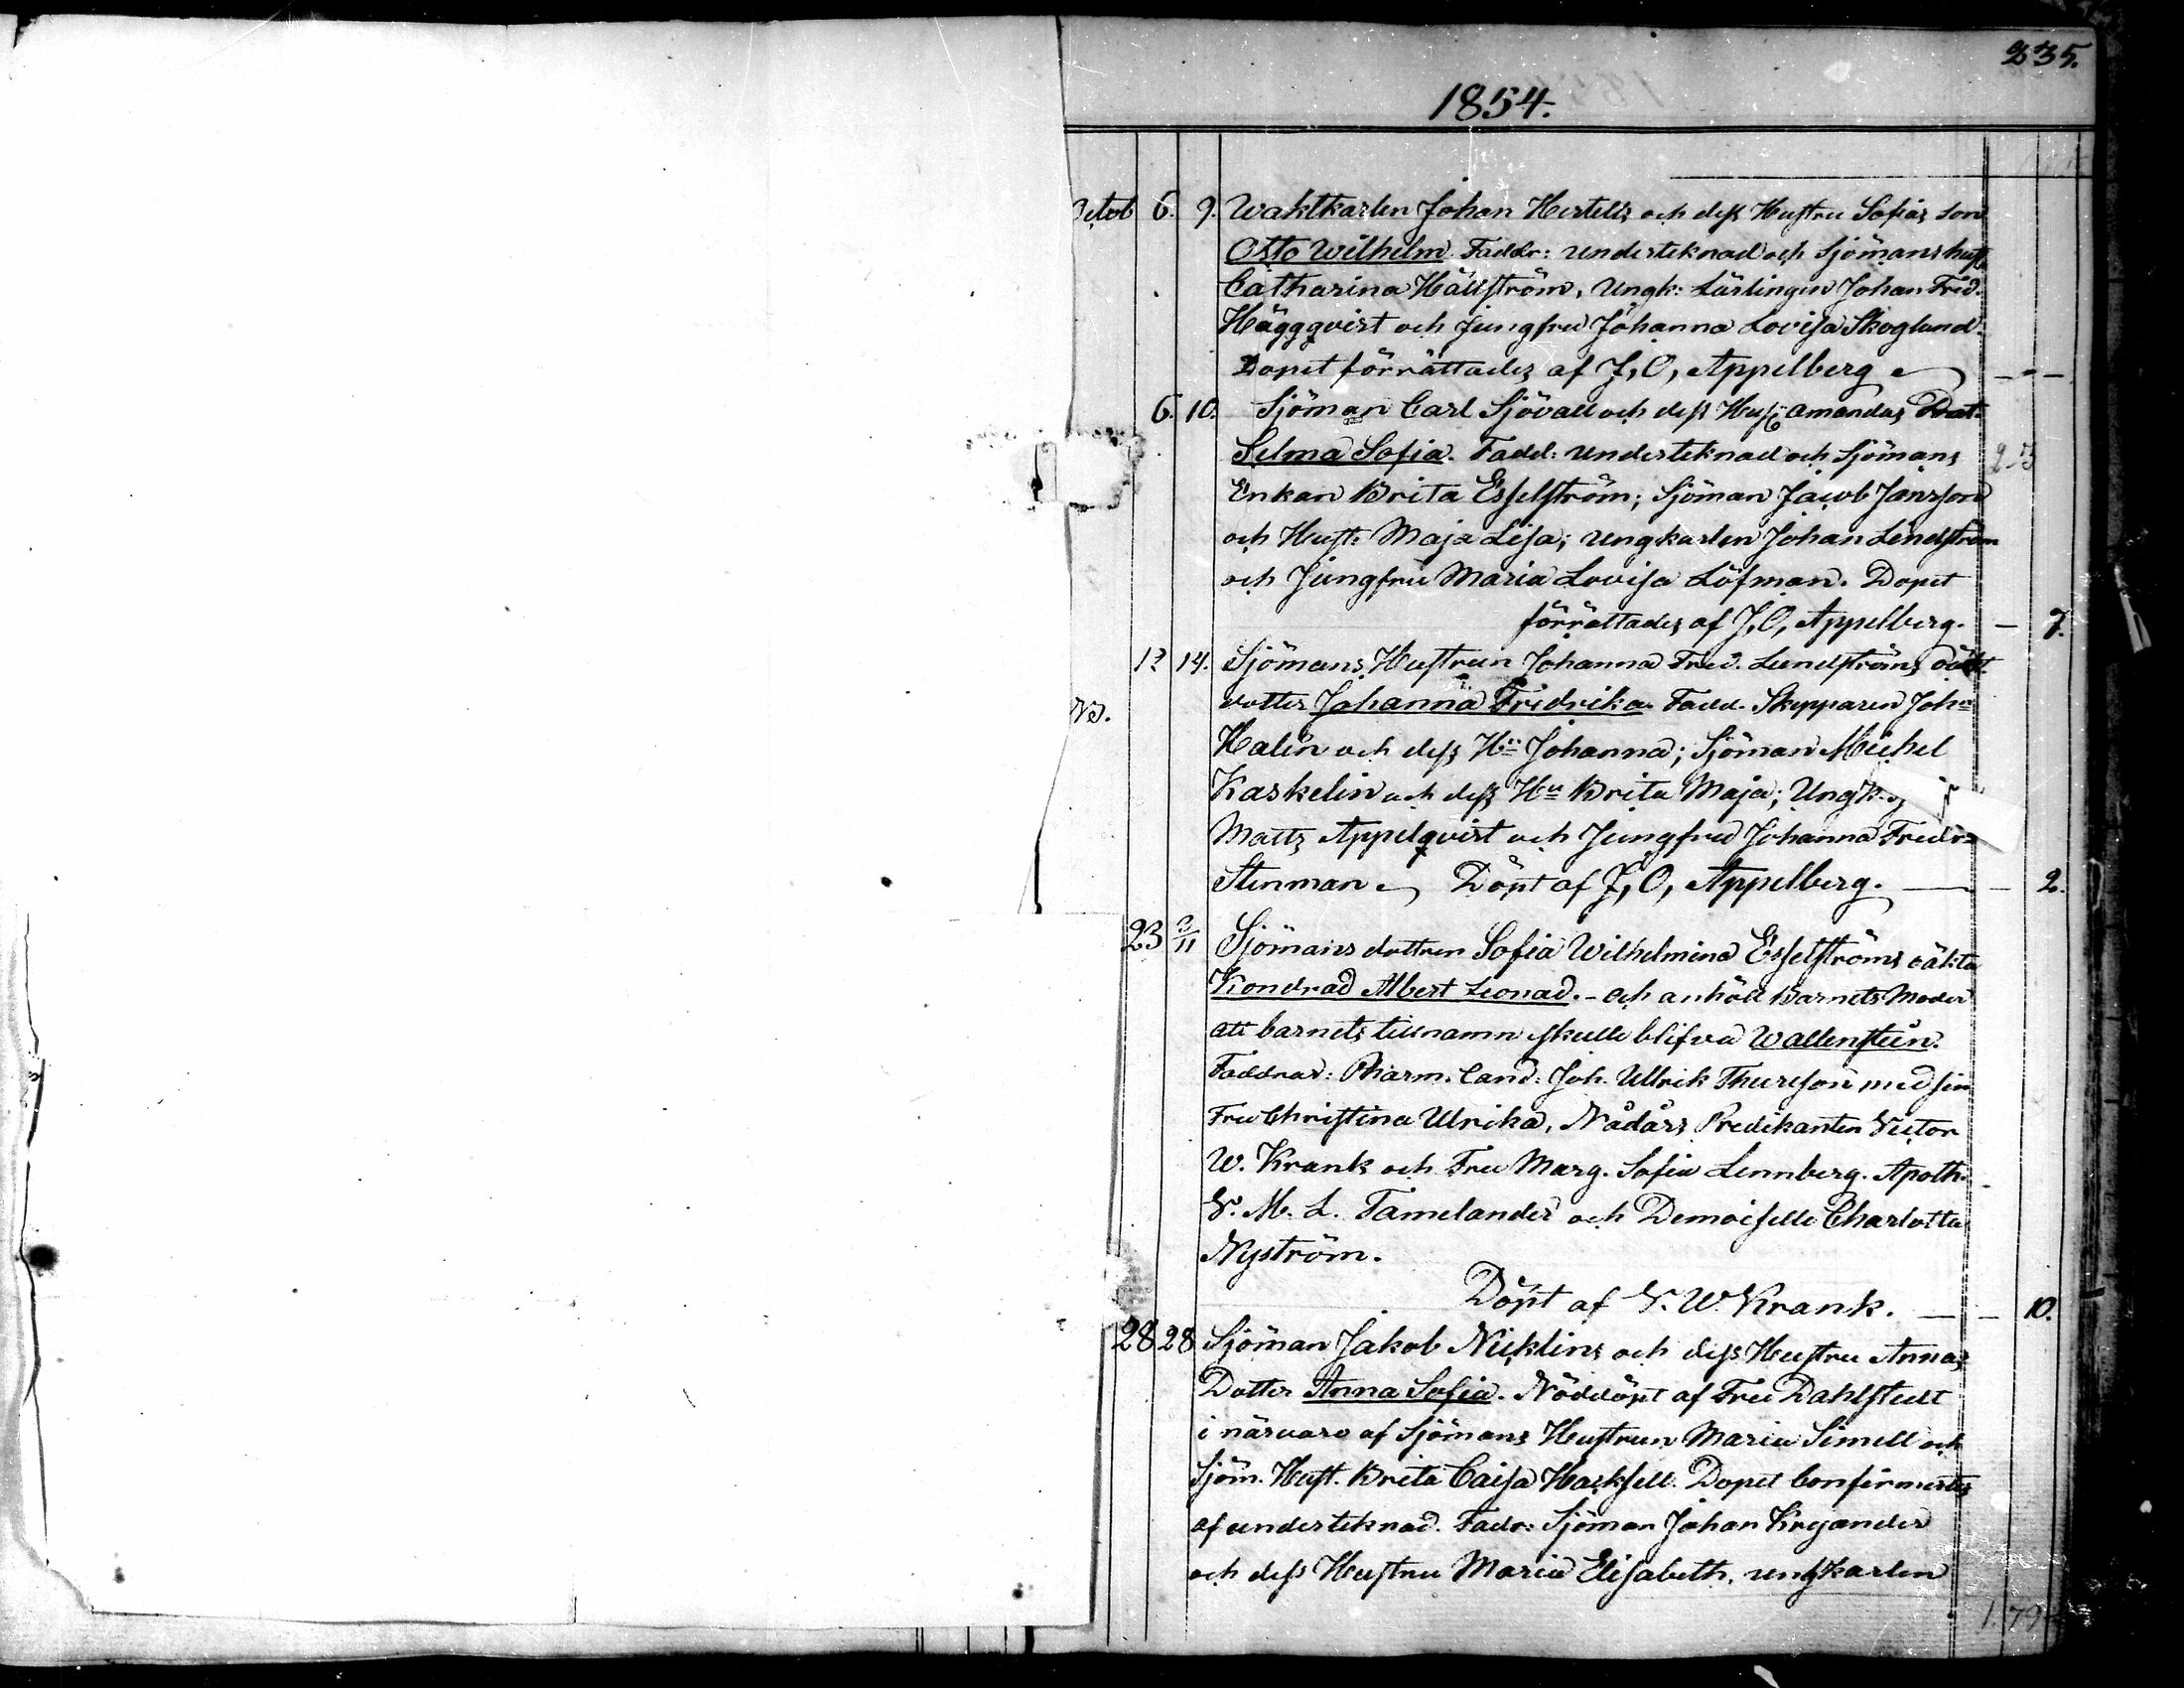 235.
1854.
Octob 6. 9. Waktkarlen Johan Hertells och dess Hustru Sofias son
Otto Wilhelm. Faddr: underteknad och Sjömanshust.
Catharina Hällström, Ungk: Lärlingen Johan Fred.
Häggqvist och Jungfru Johanna Lovisa Skoglund.
Dopet förrättades af J, O, Appelberg — - —
6. 10. Sjöman Carl Sjövall och dess Hust. Amandas Dot.
Selma Sofia. Fadd: underteknad och Sjömans 2-3
Enkan Brita Esselström; Sjöman Jacob Jansson
och Hust: Maja Lisa; ungkarlen Johan Lindström
och Jungfru Maria Lovisa Löfman. Dopet
förrättades af J, O, Appelberg. — 7.
12 14. Sjömans Hustrun Johanna Fred. Lundströms oäkt.
dotter Johanna Fridrika. Fadd. Skepparen Joh.
Nd.
Halin och dess Hu Johanna; Sjöman Michel
Kaskelin och dess Hu Brita Maja; Ungk.
Matts Appelqvist och Jungfru Johanna Fredr.
Stenman. Döpt af J, O, Appelberg. — 2.
23 3/11 Sjömans dottren Sofia Wilhelmina Esselströms oäkta
Kondrad Albert Leonad. - och anhöll Barnets Moder
att barnets tillnamn skulle blifva Wallenstein.
Faddrar: Pharm. Cand: Joh. Ullrik Thureson med sin
Fru Christina Ulrika, Nådårs Predikanten Victor
W. Krank och Fru Marg. Sofia Lennberg. Apoth.
V. M. L. Tamelander och Demoiselle Charlotta
Nyström.
Döpt af V. W. Krank. — 10.
28 28 Sjöman Jakob Nicklins och dess Hustru Annas
Dotter Anna Sofia. Nöddöpt af Fru Dahlstedt
i närvaro af Sjömans Hustrun Maria Simell och
Sjöm. Hust. Brita Caisa Hacksell. Dopet Confirmerdes
af underteknad. Fadr: Sjöman Johan Kryander
och dess Hustru Maria Elisabeth, ungkarlen
1.79